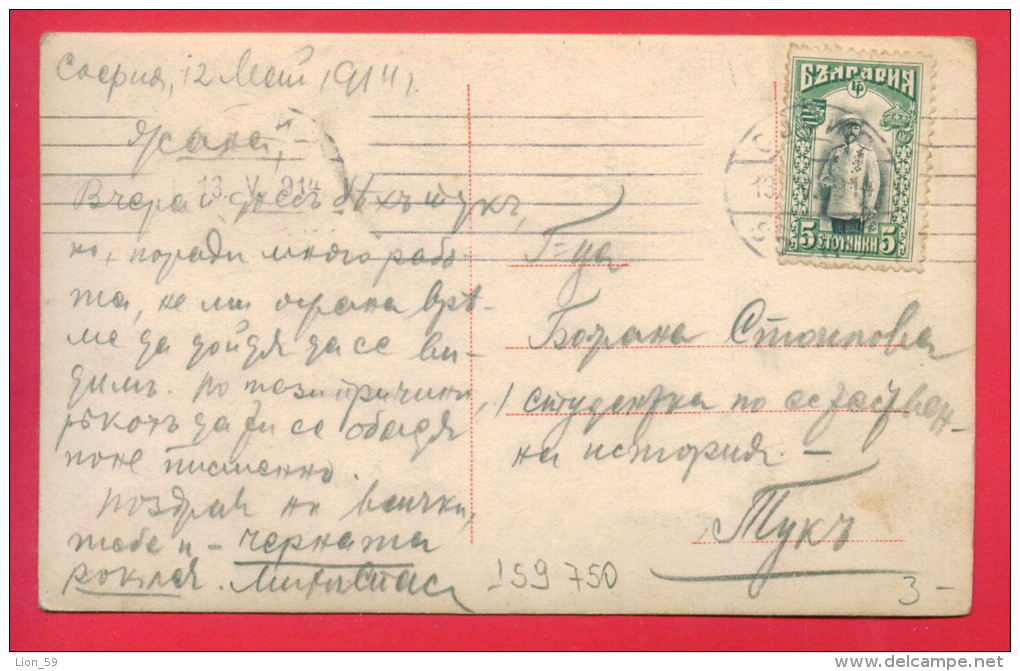 София, 12 Май 1914 г.
13. V. 914
Вчера и днесъ бѣхъ тукъ,
но, поради много рабо-
та, не ми остана врѣ-
ме да дойдя да се ви-
димъ. По тази причина,
рѣкохъ да ти се обадя
поне писменно.
Поздрав на всички,
тебе и - черната
рокля.
БЪЛГАРИЯ
5 СТОТИНКИ 5
Г-ца
Божана Стоилова
студентка по естествен-
на история. -
Тукъ
159 750
3 -
Lion_59
delcampe.net